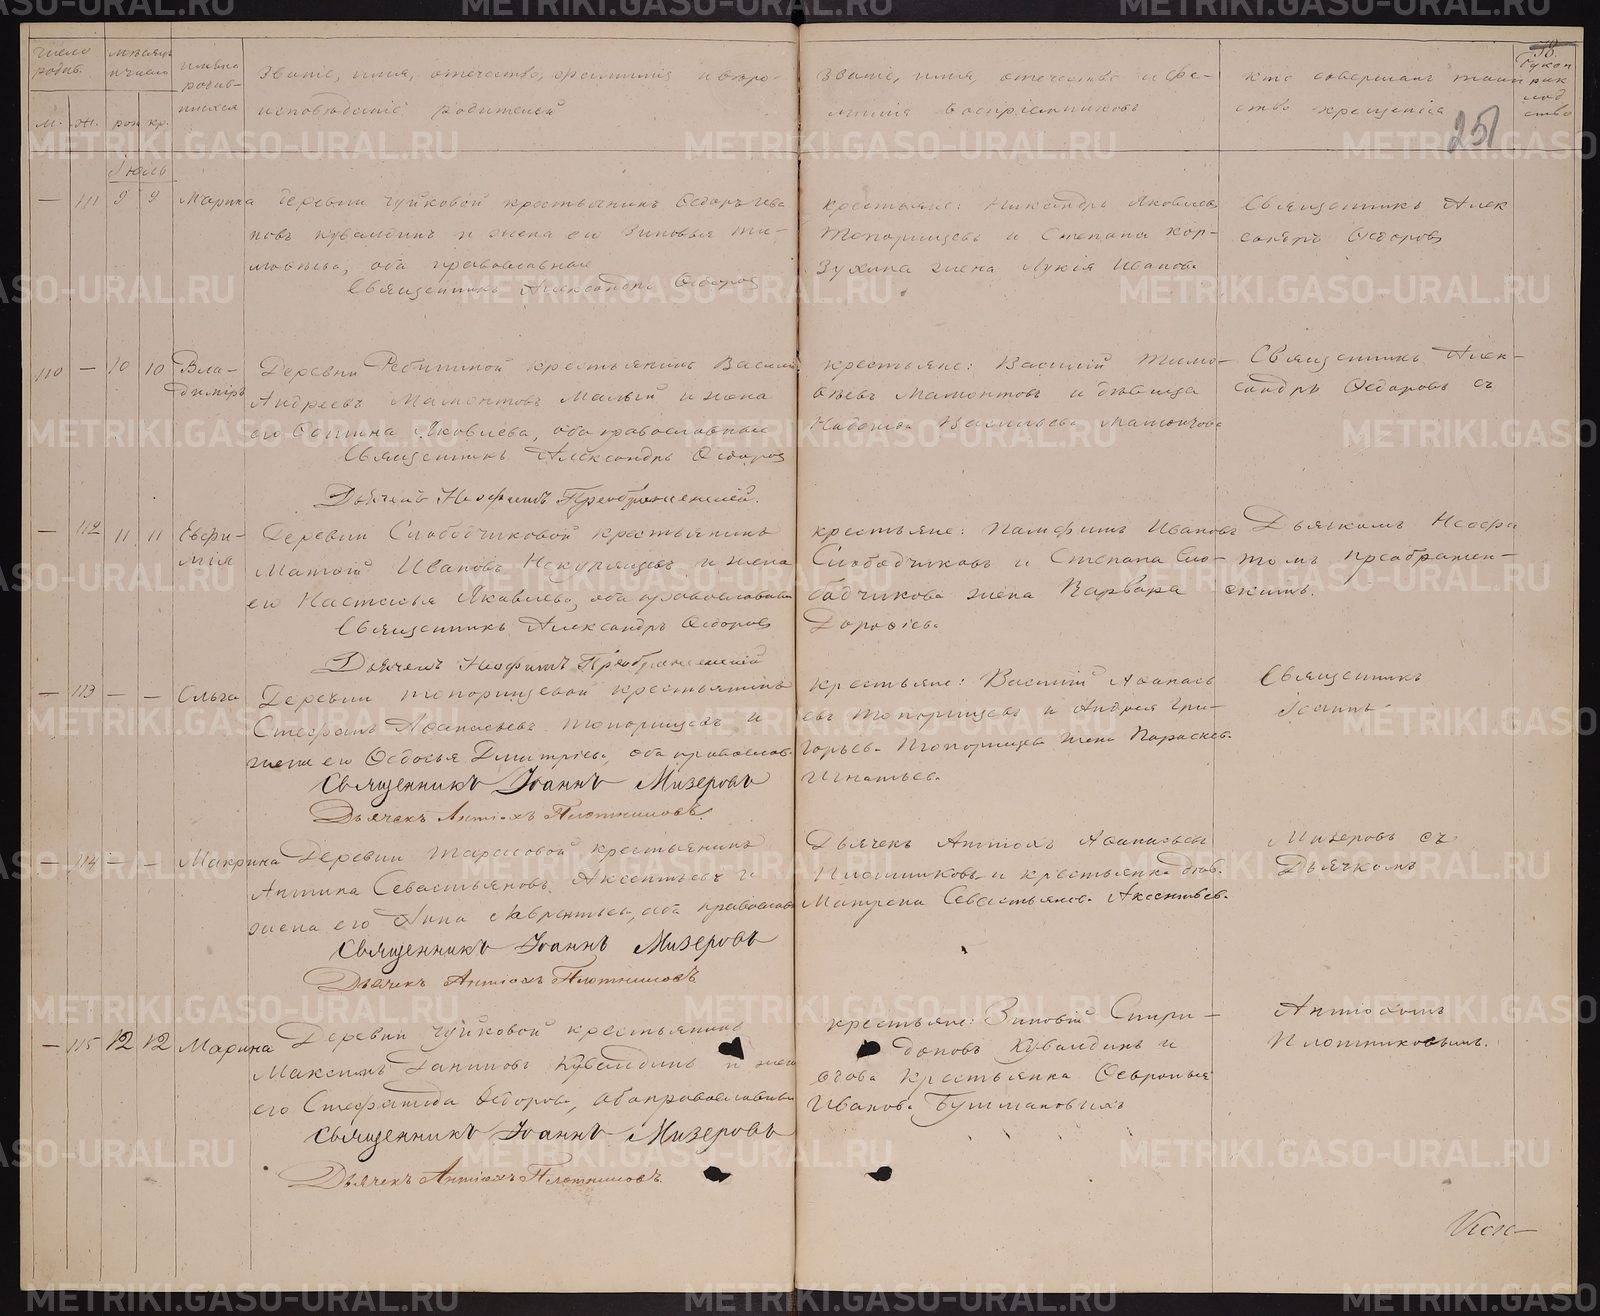 число родив.
мѣсяцъ и число
имена родив-шихся
Званіе, имя, отчество, фамилія и вѣро-
исповѣданіе родителей
Званіе, имя, отчество и фа-
милія воспріемниковъ
кто совершалъ таин
ство крещенія
251
м. ж. рож. кр.
Іюль
— 111 9 9 Марина
Деревни Чуйковой крестьянинъ Ѳедоръ Ива
новъ Кувалдинъ и жена его Зиновья Ти-
моѳеева, оба православные
Священникъ Александръ Ѳедоровъ
крестьяне: Никандръ Яковлевъ
Топорищевъ и Степана Кор-
зухина жена Лукія Иванова
Священникъ Алек
сандръ Ѳедоровъ
110 — 10 10 Вла-
димiръ
Деревни Рябининой крестьянинъ Василій
Андреевъ Мамонтовъ Малый и жена
его Яковлева, оба православные
Священникъ Александръ Ѳедоровъ
Дьячекъ Неофитъ Преображенскій.
крестьяне: Василій Тимо-
ѳеевъ Мамонтовъ и дѣвица
Надежда Васильева Мамонтова
Священникъ Алек-
сандръ Ѳедоровъ съ
— 112 11 11 Евфи-
мія
Деревни Слободчиковой крестьянинъ
Матвѣй Ивановъ и жена
его Настасья Яковлева, оба православные
Священникъ Александръ Ѳедоровъ
Дьячекъ Неофитъ Преображенскій
крестьяне: Памфилъ Ивановъ
Слободчиковъ и Степана Сло-
бодчикова жена Варвара
Дороѳеева
Дьячкомъ Неофи
томъ Преображен-
скимъ.
— 113 — — Ольга
Деревни Топорищевой крестьянинъ
Стефанъ Аѳанасьевъ Топорищевъ и
жена его Ѳедосья Дмитріева, оба православ.
Священникъ Іоаннъ Мизеровъ
Дьячекъ Антіохъ Плотниковъ.
крестьяне: Василій Аѳанась
евъ Топорищевъ и Андрея Гри-
горьева Топорищева жена Параскева
Игнатьева
Священникъ
Іоаннъ
— 114 — — Макрина
Деревни Тарасовой крестьянинъ
Антипа Севастьяновъ Аксентьевъ и
жена его Анна Лаврентьева, оба православ
Священникъ Іоаннъ Мизеровъ
Дьячекъ Антіохъ Плотниковъ
Дьячекъ Антіохъ Аѳанасьевъ
Плотниковъ и крестьянка дѣв.
Матрена Севастьянова Аксентьева.
Мизеровъ съ
Дьячкомъ
— 115 12 12 Марина
Деревни Чуйковой крестьянинъ
Максимъ Даниловъ Кувалдинъ и жена
его Стефанида Ѳедорова, оба православные
Священникъ Іоаннъ Мизеровъ
Дьячекъ Антіохъ Плотниковъ.
крестьяне: Зиновій Спири-
доновъ Кувалдинъ и
крестьянка Ѳевронья
Иванова Бушмановыхъ
Антіохомъ
Плотниковымъ.
METRIKI.GASO-URAL.RU